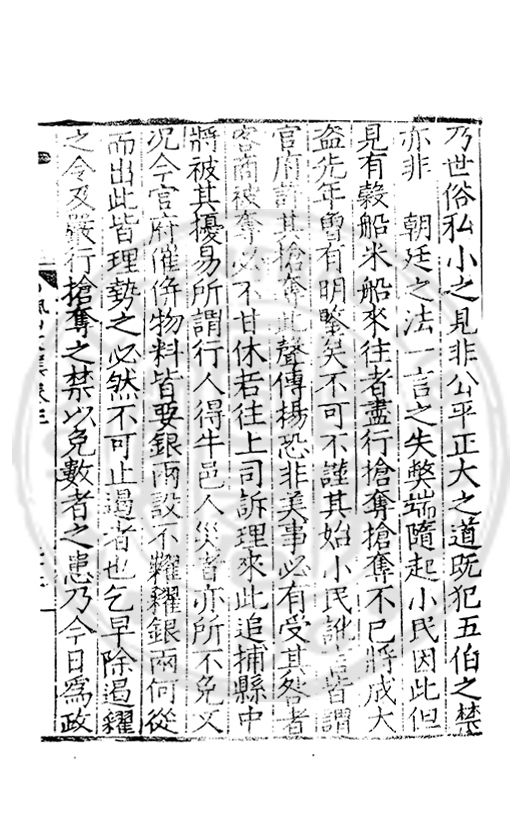 乃世俗私小之見非公平正大之道既犯五伯之禁
亦非　朝廷之法一言之失弊端隨起小民因此但
見有穀船米船來往者盡行搶奪搶奪不已將成大
盜先年曾有明鑒矣不可不謹其始小民訛言皆謂
官府許其搶奪此聲傳楊恐非美事必有受其咎者
客商被奪必不甘休若往上司訴理來此追捕縣中
將被其擾易所謂行人得牛邑人災者亦所不免又
況今官府催併物料皆要銀兩設不糶糴銀兩何從
而出此皆理勢之必然不可止遏者也乞早除遏糴
之令及嚴行搶奪之禁以免數者之患乃今日爲政